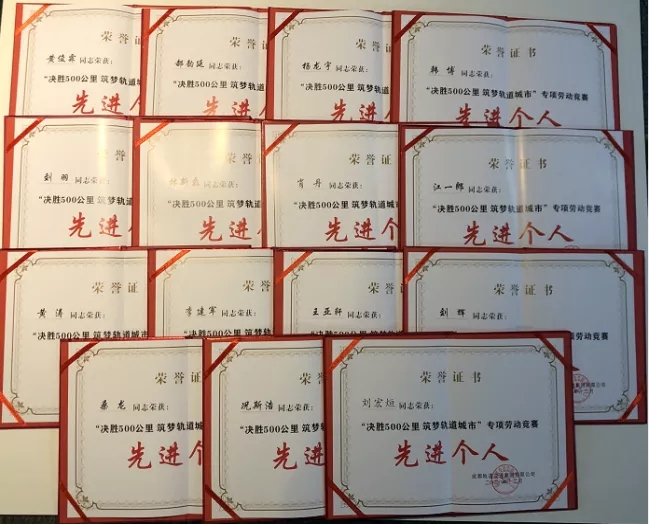 荣誉
黄俊霖 同志荣获：
“决胜500公里 筑梦轨道城
先进
荣誉
郝韵延 同志荣获：
“决胜500公里 筑梦轨道
先进
荣誉证
杨龙宇 同志荣获：
“决胜500公里 筑梦轨道城
先进个
荣誉证书
韩博 同志荣获：
“决胜500公里 筑梦轨道城市”专项劳动竞赛
先进个人
荣誉
刘羽 同志荣获：
“决胜500公里 筑梦轨道
先进
荣誉
同志荣获：
“决胜500公里 筑梦轨道
先进
荣誉证
肖丹 同志荣获：
“决胜500公里 筑梦轨道城
先进个
荣誉证书
江一帆 同志荣获：
“决胜500公里 筑梦轨道城市”专项劳动竞赛
先进个人
荣誉证
黄涛 同志荣获：
“决胜500公里 筑梦轨道城市
荣誉
李建军 同志荣获：
“决胜500公里 筑梦轨道
荣誉证
王亚轩 同志荣获：
“决胜500公里 筑梦轨道城
荣誉证书
刘辉 同志荣获：
专项劳动竞赛
荣誉证
桑龙 同志荣获：
“决胜500公里 筑梦轨道城
先进
荣誉证
况斯浩 同志荣获：
“决胜500公里 筑梦轨道
先进
荣誉证书
刘宏烜 同志荣获：
“决胜500公里 筑梦轨道城市”专项劳动竞赛
先进个人